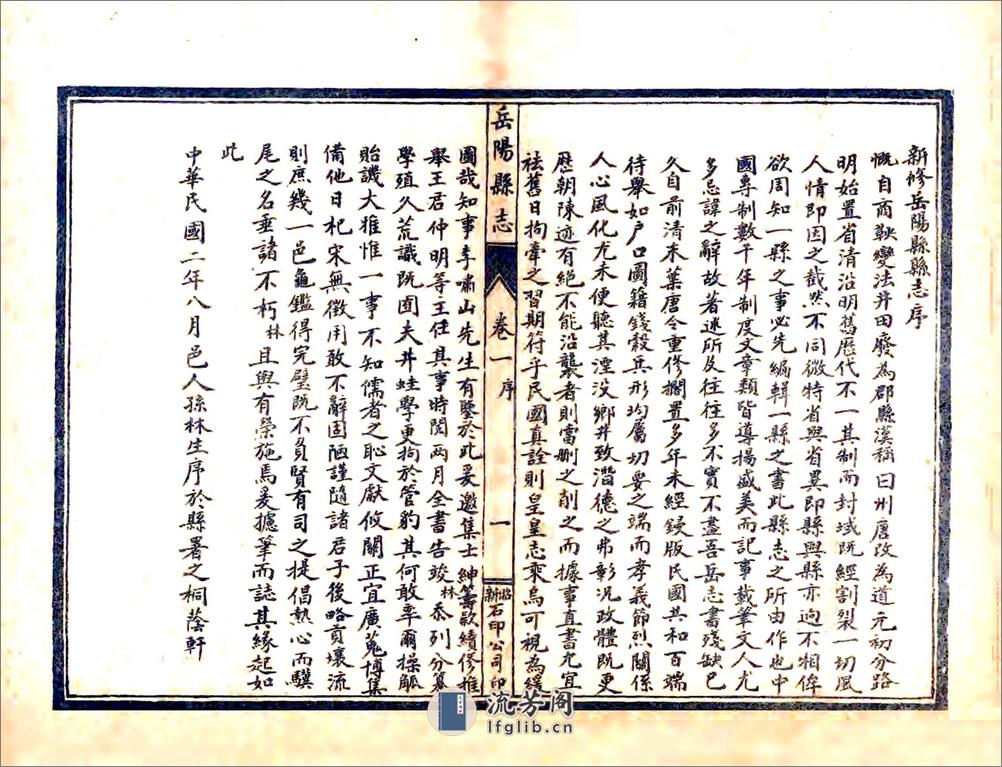 新修岳陽縣縣志序
慨自商鞅變法井田廢為郡縣漢稱曰州唐改為道元初分路
明始置省清沿明舊歷代不一其制而封域既經割裂一切風
人情即因之截然不同微特省與省異即縣與縣亦迥不相侔
欲周知一縣之事必先編輯一縣之書此縣志之所由作也中
國專制數千年制度文章類皆導揚盛美而記事載筆文人尤
多忌諱之辭故著述所及往往多不實不盡吾岳志書殘缺已
久自前清末葉唐令重修擱置多年未經鋟版民國共和百端
待舉如戶口圖籍錢穀兵形均屬切要之端而孝義節烈關係
人心風化尤未便聽其湮沒鄉井致潛德之弗彰況政體既更
歷朝陳迹有絕不能沿襲者則當删之削之而據事直書尤宜
袪舊日拘牽之習期符乎民國真詮則皇皇志乘烏可視為緩
岳陽縣志
卷一
序
一
臨新石印公司印
圖哉知事李嘯山先生有鑒於此爰邀集士紳籌款續修推
舉王君仲明等主任其事時閱兩月全書告竣林忝列分纂
學殖久荒識既囿夫井蛙學更拘於管豹其何敢率爾操觚
貽譏大雅惟一事不知儒者之恥文獻攸關正宜廣蒐博集
備他日杞宋無徵用敢不辭固陋謹隨諸君子後略貢壤流
則庶幾一邑龜鑑得完璧既不負賢有司之提倡熱心而驥
尾之名垂諸不朽林且與有榮施焉爰攄筆而誌其緣起如
此
中華民國二年八月邑人孫林生序於縣署之桐蔭軒
流芳阁
lfglib.cn